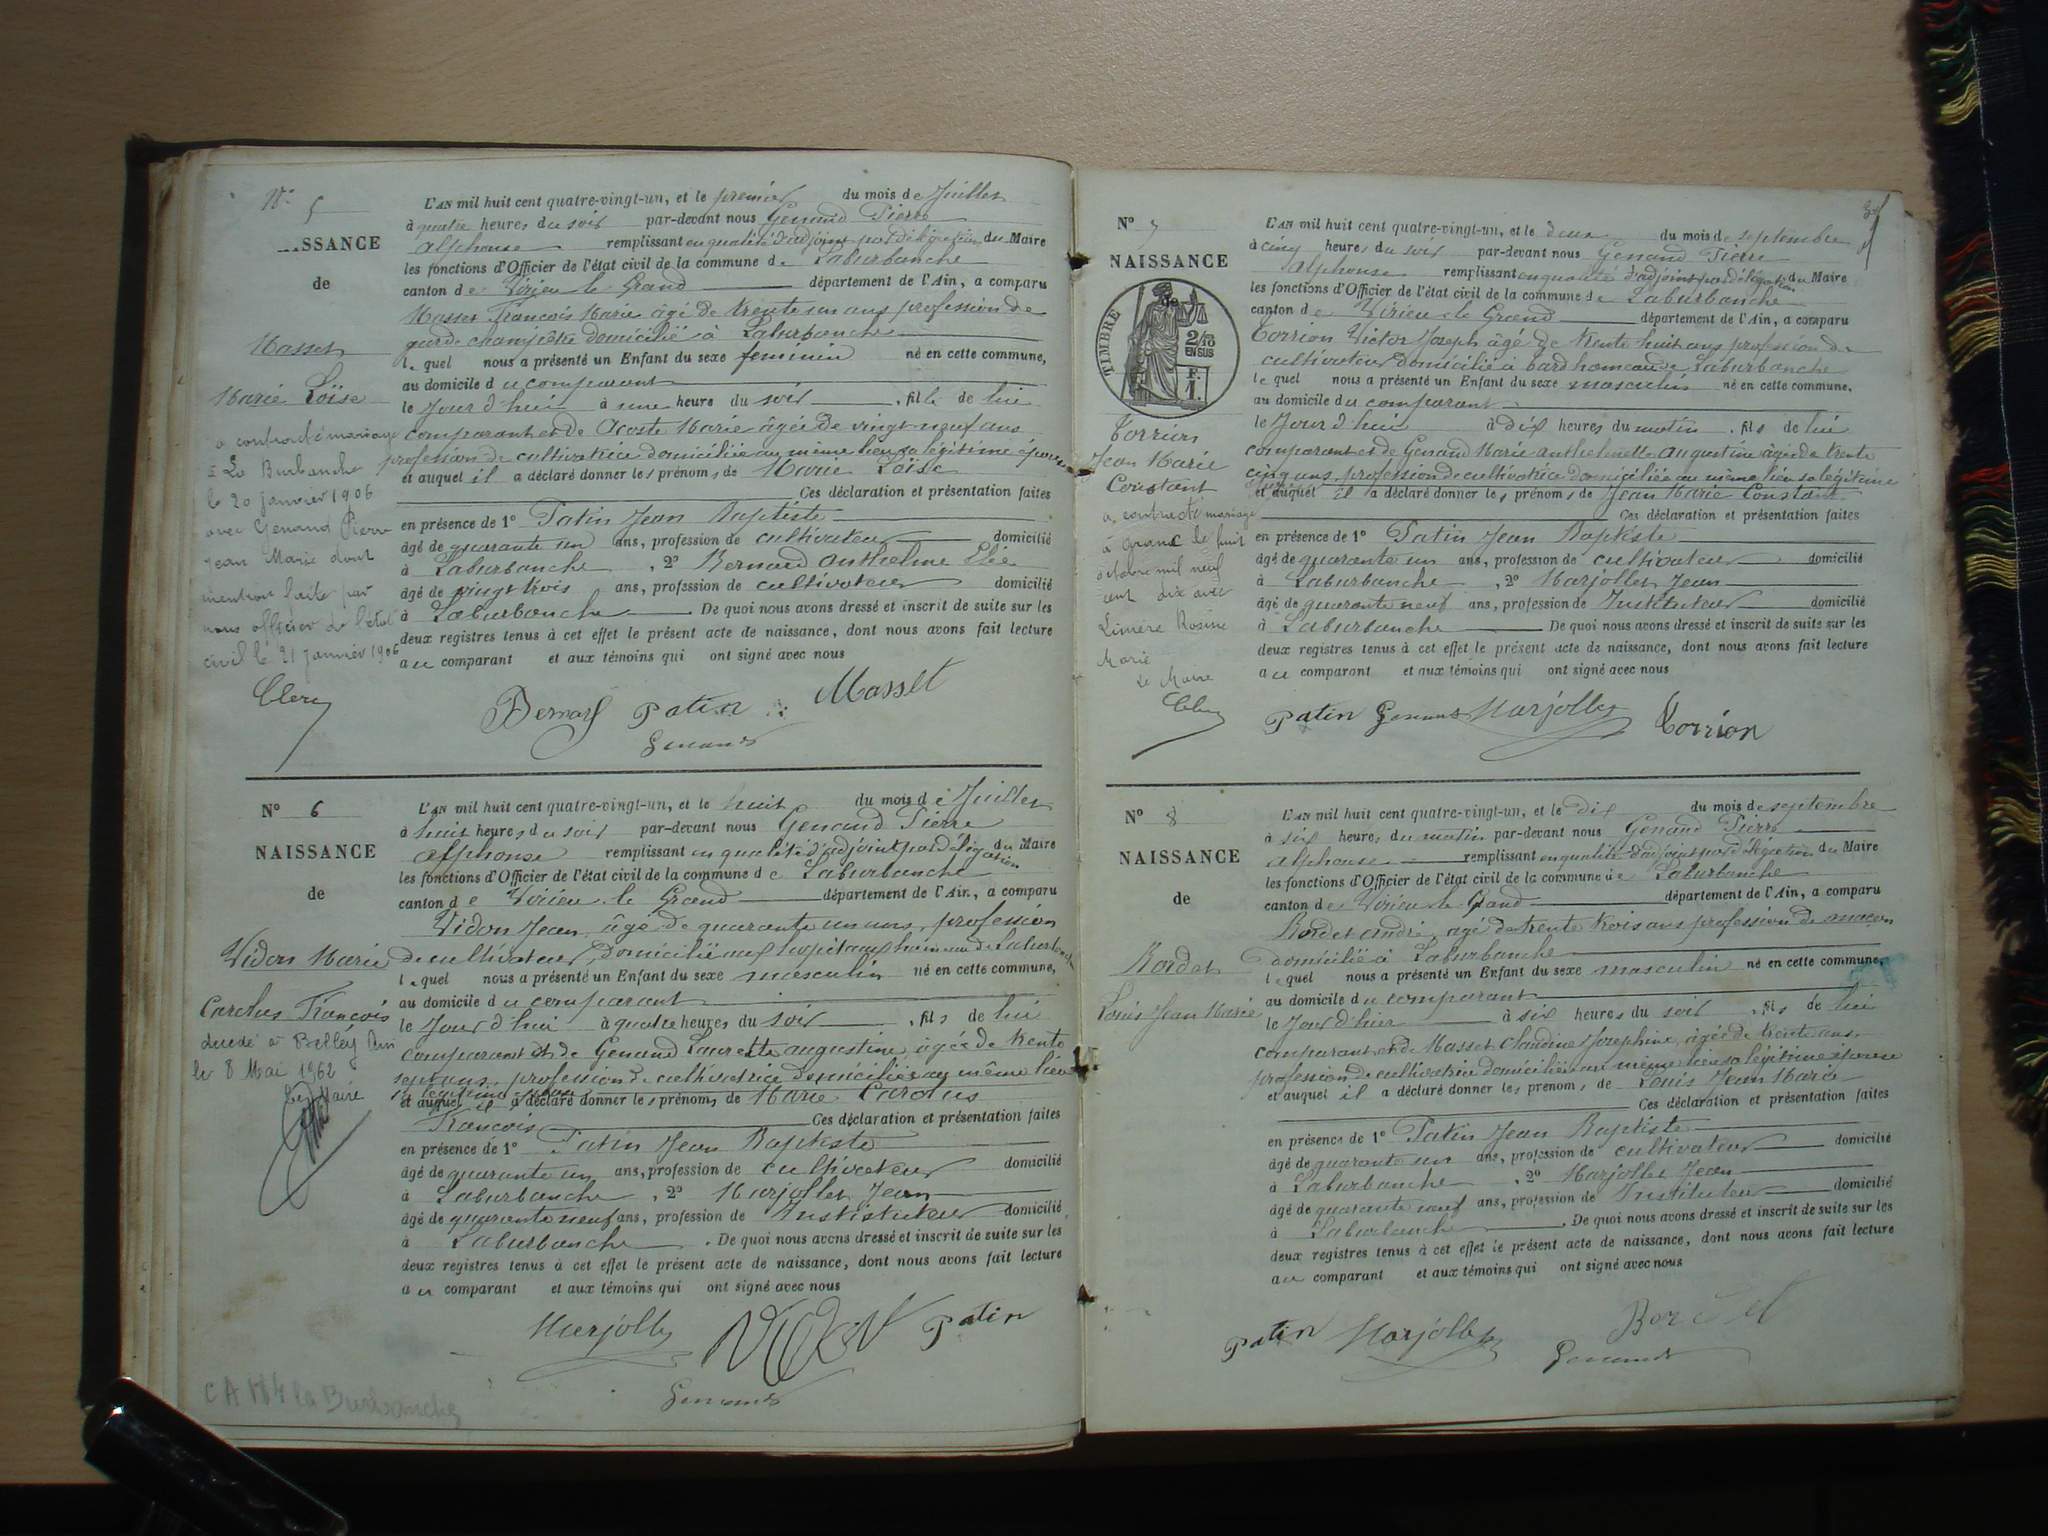 No 5
NAISSANCE
de
Masset
Marie Loïse
a contracté mariage
à La Burbanche
le 20 janvier 1906
avec Genaud Pierre
Jean Marie dont
mention faite par
nous officier de l'état
civil le 21 janvier 1906
Clerc
L'AN mil huit cent quatre-vingt-un, et le premier du mois de Juillet
à quatre heures du soir par-devant nous Genaud Pierre
Alphonse remplissant en qualité d'adjoint par délégation du Maire
les fonctions d'Officier de l'état civil de la commune de Laburbanche
canton de Virieu le Grand département de l'Ain, a comparu
Masset François Marie âgé de trente un ans profession de
garde champêtre domicilié à Laburbanche
lequel nous a présenté un Enfant du sexe féminin né en cette commune,
au domicile du comparant
le Jour d'hui à une heure du soir , fille de lui
comparant et de Acoste Marie âgée de vingt neuf ans
profession de cultivatrice domiciliée au même lieu sa légitime épouse
et auquel il a déclaré donner les prénoms de Marie Loïse
Ces déclaration et présentation faites
en présence de 1o Patin Jean Baptiste
âgé de quarante un ans, profession de cultivateur domicilié
à Laburbanche , 2o Bernard Anthelme Elie
âgé de vingt trois ans, profession de cultivateur domicilié
à Laburbanche De quoi nous avons dressé et inscrit de suite sur les
deux registres tenus à cet effet le présent acte de naissance, dont nous avons fait lecture
au comparant et aux témoins qui ont signé avec nous
Bernard Patin Masset
Genaud
No 6
NAISSANCE
de
Vidon Marie
Carolus François
décédé à Belley Ain
le 8 Mai 1962
Le Maire
L'AN mil huit cent quatre-vingt-un, et le huit du mois de Juillet
à huit heures du soir par-devant nous Genaud Pierre
Alphonse remplissant en qualité d'adjoint par délégation du Maire
les fonctions d'Officier de l'état civil de la commune de Laburbanche
canton de Virieu le Grand département de l'Ain, a comparu
Vidon Jean, âgé de quarante un ans, profession
de cultivateur, domicilié aux hopitaux hameau de Laburbanche
lequel nous a présenté un Enfant du sexe masculin né en cette commune,
au domicile du comparant
le Jour d'hui à quatre heures du soir , fils de lui
comparant et de Genaud Laurette Augustine, âgée de trente
sept ans, profession de cultivatrice domiciliée au même lieu
sa légitime épouse
et auquel il a déclaré donner les prénoms de Marie Carolus
François Ces déclaration et présentation faites
en présence de 1o Patin Jean Baptiste
âgé de quarante un ans, profession de cultivateur domicilié
à Laburbanche , 2o Marjollet Jean
âgé de quarante neuf ans, profession de Instituteur domicilié
à Laburbanche . De quoi nous avons dressé et inscrit de suite sur les
deux registres tenus à cet effet le présent acte de naissance, dont nous avons fait lecture
au comparant et aux témoins qui ont signé avec nous
Marjollet Vidon Patin
Genaud
CA N4 la Burbanche
No 7
NAISSANCE
de
TIMBRE
2/10
EN SUS
1 F.
Corrion
Jean Marie
Constant
a contracté mariage
à le huit
octobre mil neuf
cent dix avec
Rosine
Marie
Le Maire
Clerc
L'AN mil huit cent quatre-vingt-un, et le deux du mois de septembre
à cinq heures du soir par-devant nous Genaud Pierre
Alphonse remplissant en qualité d'adjoint par délégation du Maire
les fonctions d'Officier de l'état civil de la commune de Laburbanche
canton de Virieu le Grand département de l'Ain, a comparu
Corrion Victor Joseph âgé de trente huit ans profession de
cultivateur domicilié à hameau de Laburbanche
lequel nous a présenté un Enfant du sexe masculin né en cette commune,
au domicile du comparant
le Jour d'hui à dix heures du matin , fils de lui
comparant et de Genaud Marie Anthelmette Augustine âgée de trente
cinq ans, profession de cultivatrice domiciliée au même lieu sa légitime
épouse
et auquel il a déclaré donner les prénoms de Jean Marie Constant
Ces déclaration et présentation faites
en présence de 1o Patin Jean Baptiste
âgé de quarante un ans, profession de cultivateur domicilié
à Laburbanche , 2o Marjollet Jean
âgé de quarante neuf ans, profession de Instituteur domicilié
à Laburbanche De quoi nous avons dressé et inscrit de suite sur les
deux registres tenus à cet effet le présent acte de naissance, dont nous avons fait lecture
au comparant et aux témoins qui ont signé avec nous
Patin Genaud Marjollet Corrion
No 8
NAISSANCE
de
Bordet
Louis Jean Marie
L'AN mil huit cent quatre-vingt-un, et le dix du mois de septembre
à six heures du matin par-devant nous Genaud Pierre
Alphonse remplissant en qualité d'adjoint par délégation du Maire
les fonctions d'Officier de l'état civil de la commune de Laburbanche
canton de Virieu le Grand département de l'Ain, a comparu
Bordet André, âgé de trente trois ans profession de maçon
domicilié à Laburbanche
lequel nous a présenté un Enfant du sexe masculin né en cette commune,
au domicile du comparant
le Jour d'hier à six heures du soir , fils de lui
comparant et de Masset Claudine Joséphine, âgée de trente ans,
profession de cultivatrice domiciliée au même lieu sa légitime épouse
et auquel il a déclaré donner les prénoms de Louis Jean Marie
Ces déclaration et présentation faites
en présence de 1o Patin Jean Baptiste
âgé de quarante un ans, profession de cultivateur domicilié
à Laburbanche , 2o Marjollet Jean
âgé de quarante neuf ans, profession de Instituteur domicilié
à Laburbanche . De quoi nous avons dressé et inscrit de suite sur les
deux registres tenus à cet effet le présent acte de naissance, dont nous avons fait lecture
au comparant et aux témoins qui ont signé avec nous
Patin Marjollet Bordet
Genaud